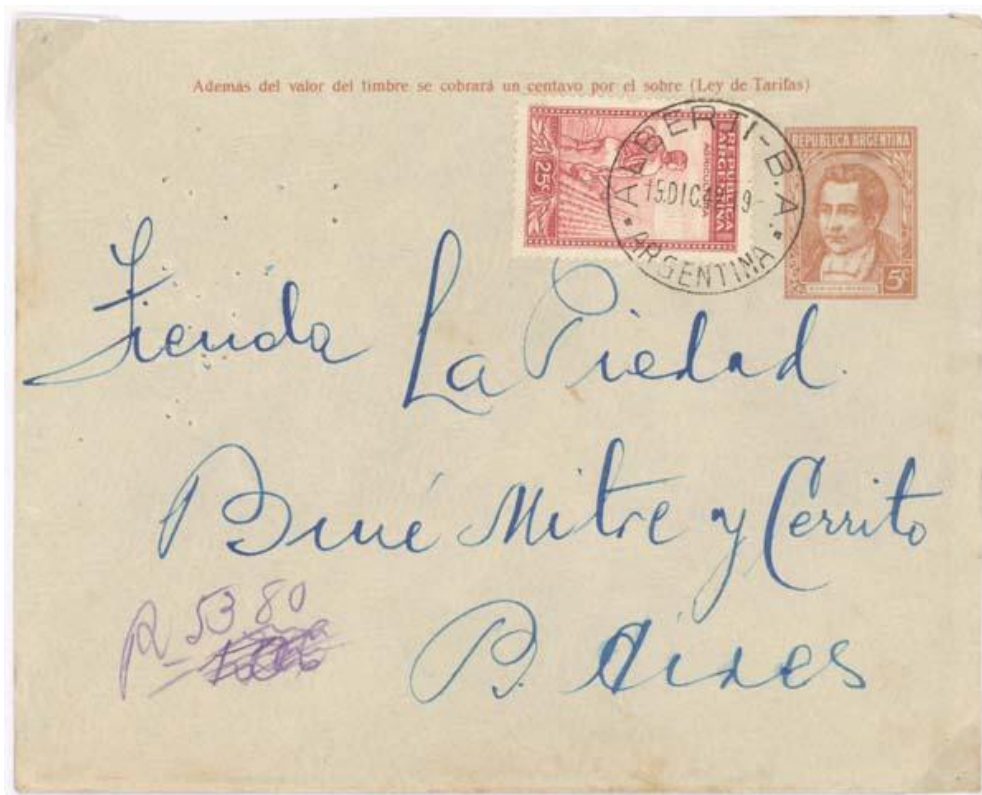 Además del valor del timbre se cobrará un centavo por el sobre (Ley de Tarifas)
REPUBLICA
ARGENTINA
AGRICULTURA
25c
ALBERTI-B.A.
15.DIC.4
9-
ARGENTINA
REPUBLICA ARGENTINA
MARIANO MORENO
5c
Tienda La Piedad.
Bmé Mitre y Cerrito
B. Aires
R- 5380